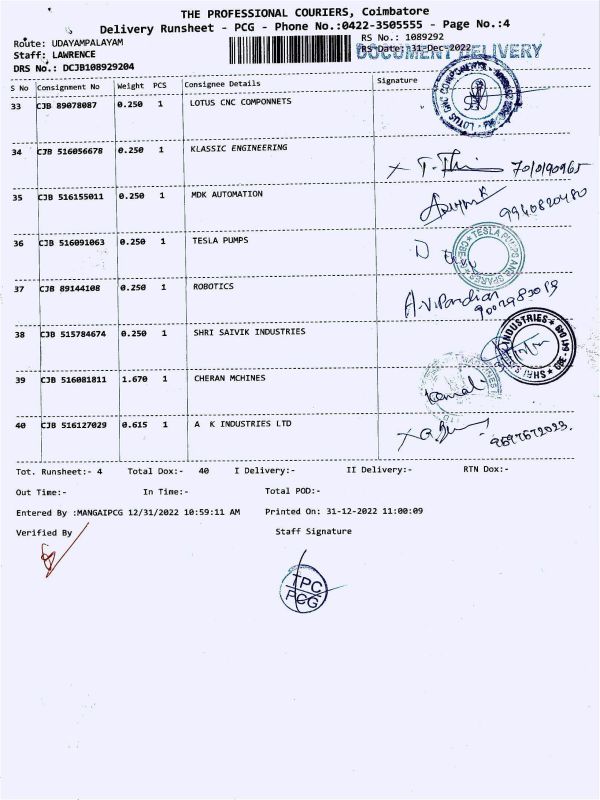 THE PROFESSIONAL COURIERS, Coimbatore
Delivery Runsheet - PCG - Phone No.:0422-3505555 - Page No.:4
Route: UDAYAMPALAYAM
RS No.: 1089292
Staff: LAWRENCE
RS Date: 31-Dec-2022
DOCUMENT DELIVERY
DRS No.: DCJB108929204
S No Consignment No Weight PCS Consignee Details Signature
33 CJB 89078087 0.250 1 LOTUS CNC COMPONNETS
34 CJB 516056678 0.250 1 KLASSIC ENGINEERING
35 CJB 516155011 0.250 1 MDK AUTOMATION
9940820480
36 CJB 516091063 0.250 1 TESLA PUMPS
TESLA PUMPS AND SPARES CBE
37 CJB 89144108 0.250 1 ROBOTICS
A.V.Pandian
38 CJB 515784674 0.250 1 SHRI SAIVIK INDUSTRIES
39 CJB 516081811 1.670 1 CHERAN MCHINES
40 CJB 516127029 0.615 1 A K INDUSTRIES LTD
Tot. Runsheet:- 4 Total Dox:- 40 I Delivery:- II Delivery:- RTN Dox:-
Out Time:- In Time:- Total POD:-
Entered By :MANGAIPCG 12/31/2022 10:59:11 AM Printed On: 31-12-2022 11:00:09
Verified By Staff Signature
TPC
PCG